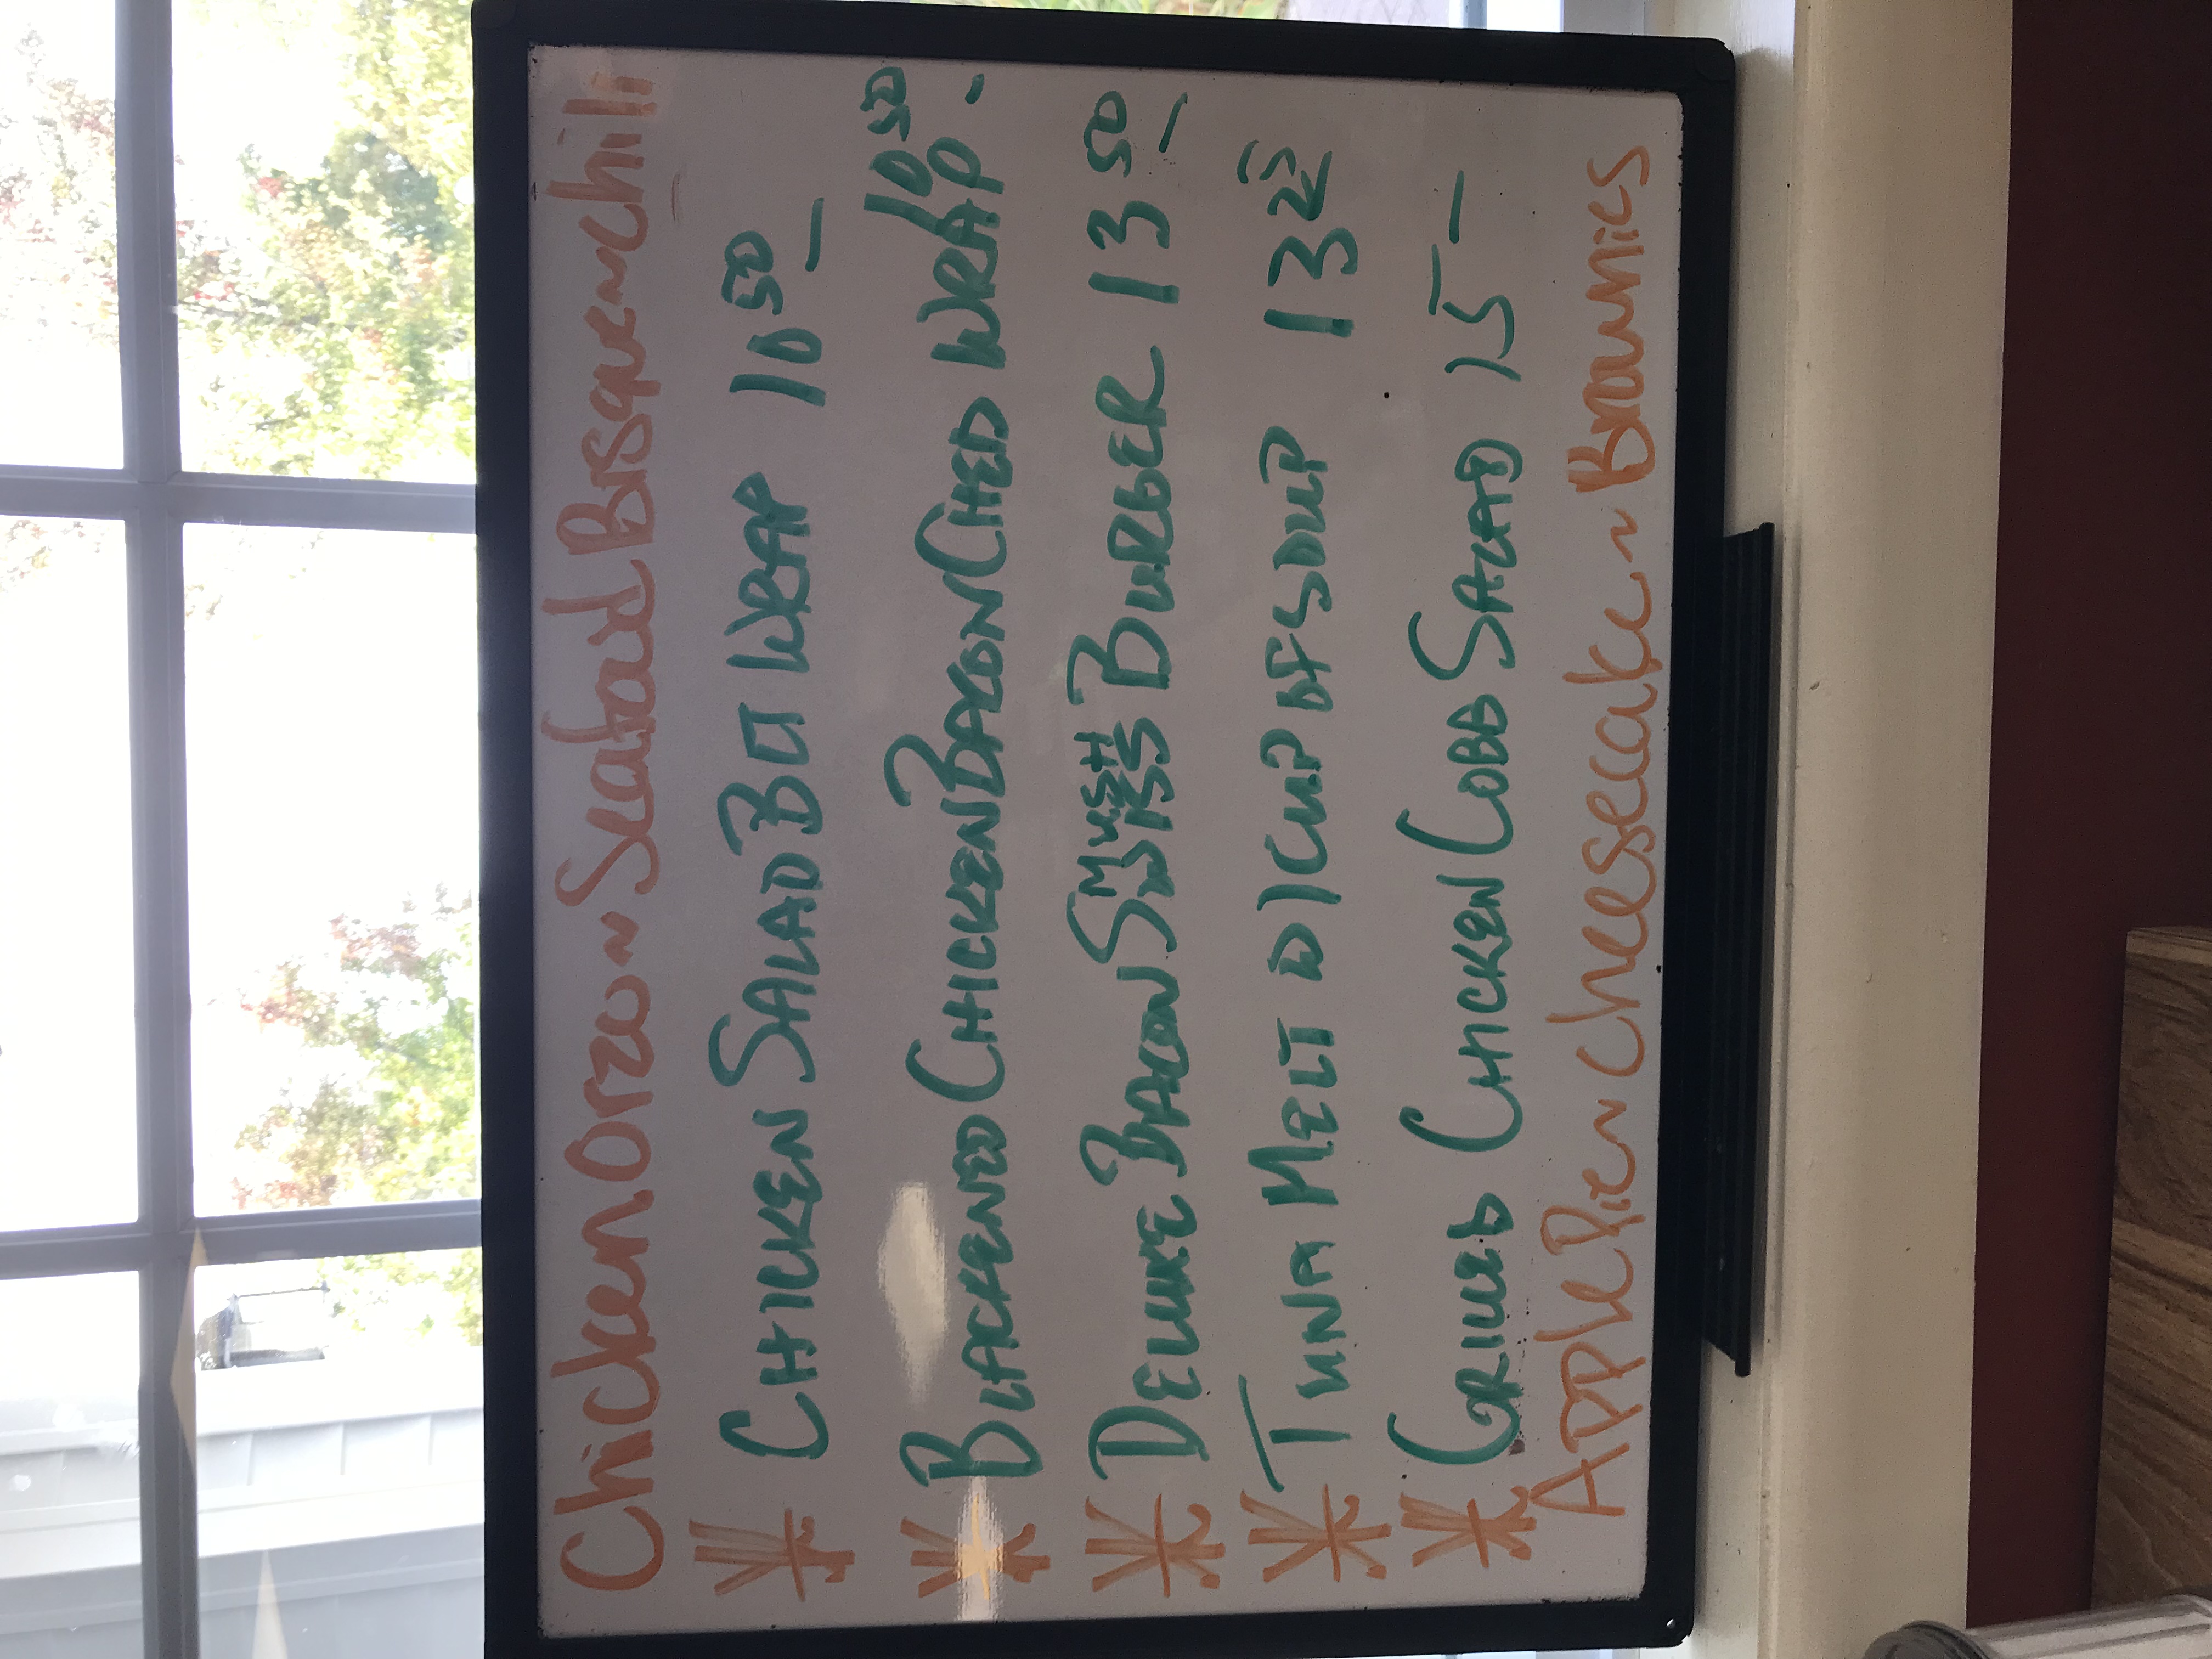 Chicken Orzo ~ Seafood Bisque ~ Chili
* CHICKEN SALAD BLT WRAP 10 50
* BLACKENED CHICKEN BACON CHED WRAP 10 50 -
* DELUXE BACON MUSH SWISS BURGER 13 50
* TUNA MELT W/CUP OF SOUP 13 25
* GRILLED CHICKEN COBB SALAD 15 -
Apple Pie ~ Cheesecake ~ Brownies